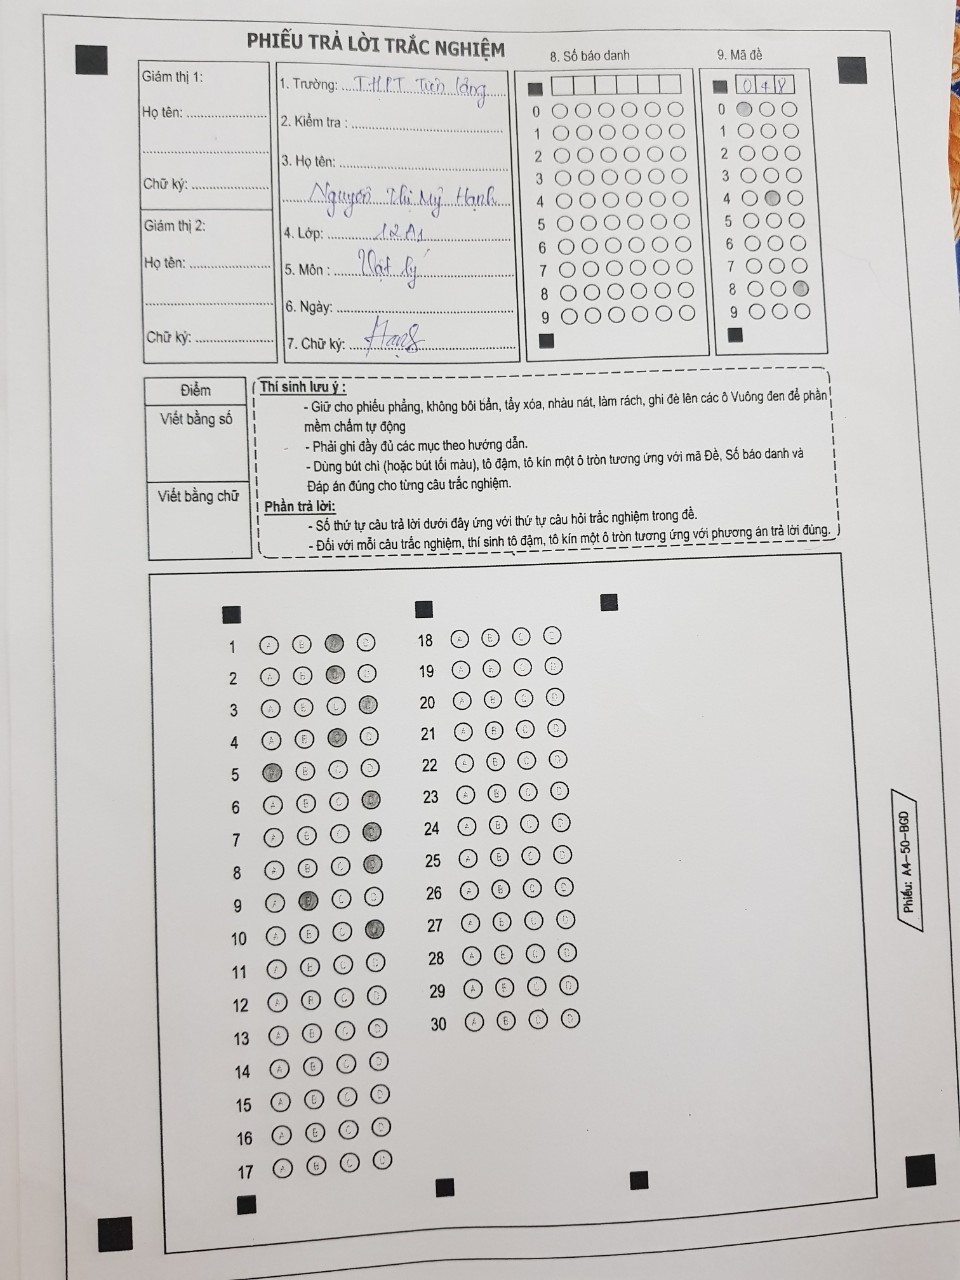 PHIẾU TRẢ LỜI TRẮC NGHIỆM
8. Số báo danh
9. Mã đề
Giám thị 1:
Họ tên:
Chữ ký:
Giám thị 2:
Họ tên:
Chữ ký:
1. Trường: THPT Tiên Lãng
2. Kiểm tra :
3. Họ tên:
Nguyễn Thị Mỹ Hạnh
4. Lớp: 12A1
5. Môn : Vật lý
6. Ngày:
7. Chữ ký: Hạnh
0 4 8
0
1
2
3
4
5
6
7
8
9
0
1
2
3
4
5
6
7
8
9
Điểm
Viết bằng số
Viết bằng chữ
Thí sinh lưu ý :
- Giữ cho phiếu phẳng, không bôi bẩn, tẩy xóa, nhàu nát, làm rách, ghi đè lên các ô Vuông đen để phần
mềm chấm tự động
- Phải ghi đầy đủ các mục theo hướng dẫn.
- Dùng bút chì (hoặc bút tối màu), tô đậm, tô kín một ô tròn tương ứng với mã Đề, Số báo danh và
Đáp án đúng cho từng câu trắc nghiệm.
Phần trả lời:
- Số thứ tự câu trả lời dưới đây ứng với thứ tự câu hỏi trắc nghiệm trong đề.
- Đối với mỗi câu trắc nghiệm, thí sinh tô đậm, tô kín một ô tròn tương ứng với phương án trả lời đúng.
1
2
3
4
5
6
7
8
9
10
11
12
13
14
15
16
17
18
19
20
21
22
23
24
25
26
27
28
29
30
Phiếu: A4-50-BGD